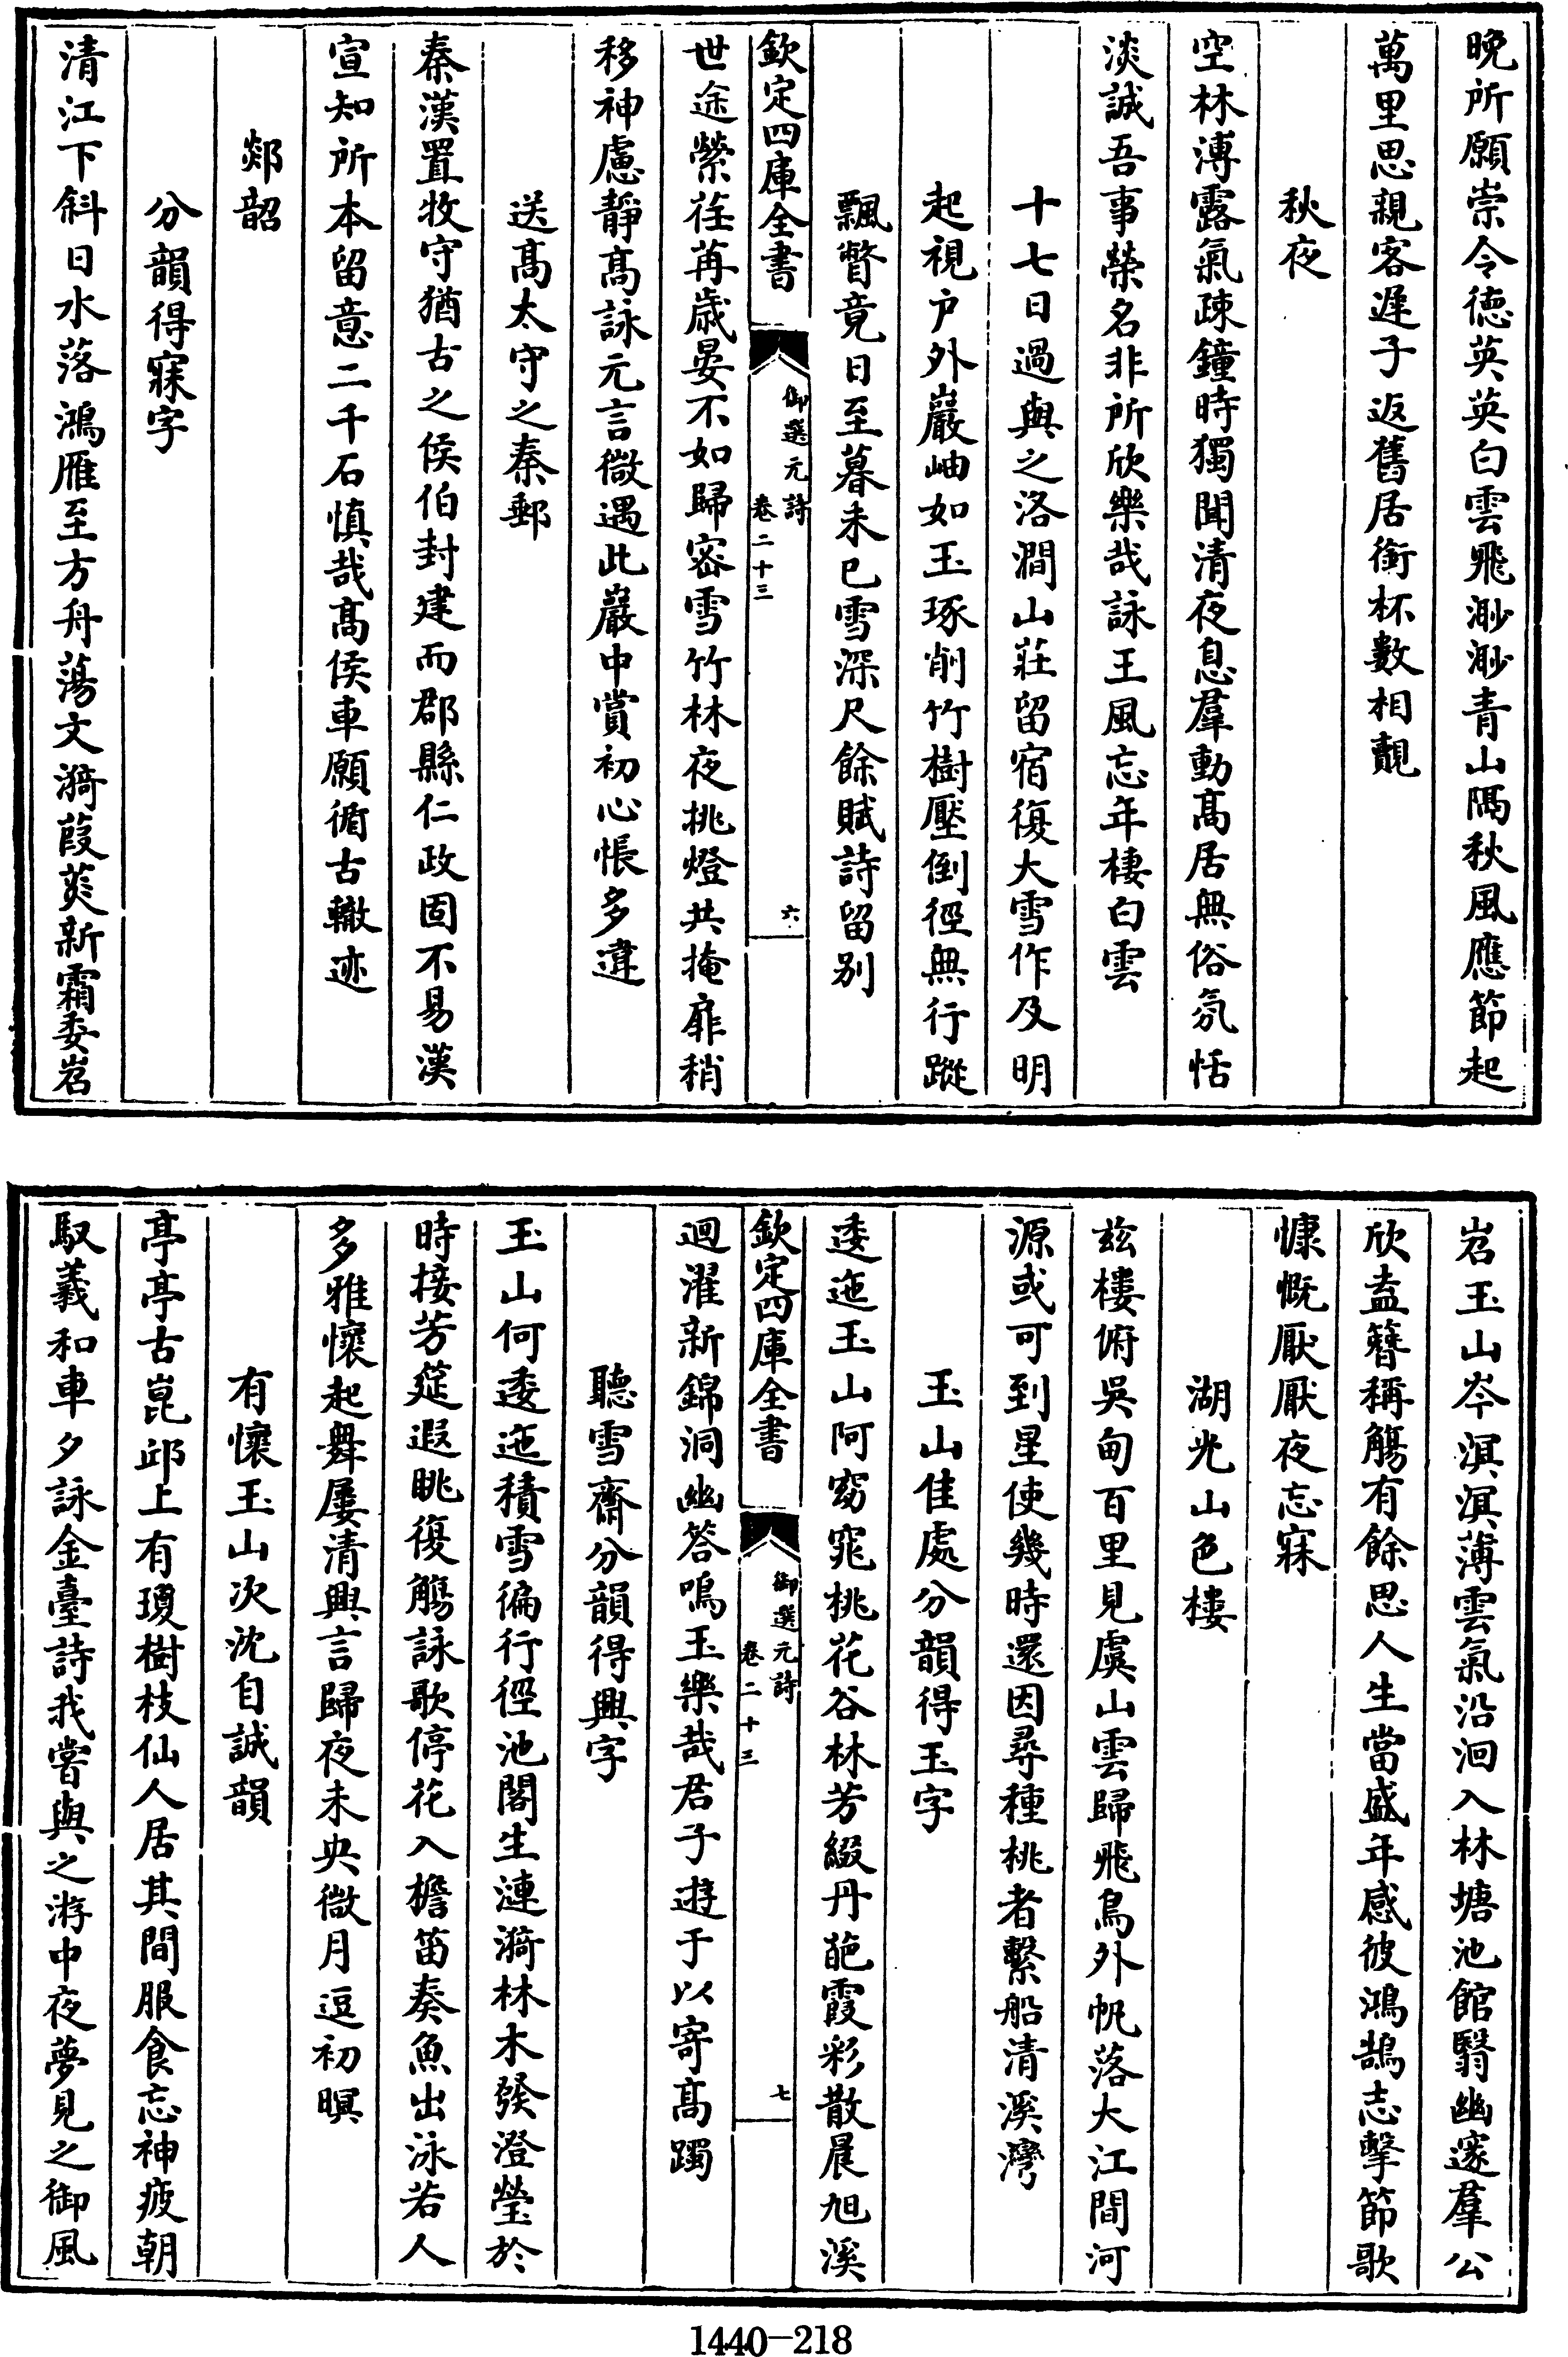 晚所願崇令德英英白雲飛渺渺青山隅秋風應節起
萬里思親客遲子返舊居銜杯數相覿
秋夜
空林漙露氣疎鐘時獨聞清夜息羣動高居無俗氛恬
淡誠吾事榮名非所欣樂哉詠王風忘年棲白雲
十七日過與之洛澗山莊留宿復大雪作及明
起視户外巖岫如玉琢削竹樹壓倒徑無行蹤
飄瞥竟日至暮未已雪深尺餘賦詩留別
欽定四庫全書
御選元詩
卷二十三
六
世途縈荏苒歳晏不如歸密雪竹林夜挑燈共掩扉稍
移神慮靜高詠元言微遇此巖中賞初心悵多違
送高太守之秦郵
秦漢置牧守猶古之侯伯封建而郡縣仁政固不易漢
宣知所本留意二千石慎哉高侯車願循古轍迹
郯韶
分韻得寐字
清江下斜日水落鴻雁至方舟蕩文漪葭菼新霜委岧
岧玉山岑溟溟薄雲氣沿洄入林塘池館翳幽邃羣公
欣盍簪稱觴有餘思人生當盛年感彼鴻鵠志擊節歌
慷慨厭厭夜忘寐
湖光山色樓
兹樓俯吳甸百里見虞山雲歸飛鳥外帆落大江間河
源或可到星使幾時還因尋種桃者繫船清溪灣
玉山佳處分韻得玉字
逶迤玉山阿窈窕桃花谷林芳綴丹葩霞彩散晨旭溪
欽定四庫全書
御選元詩
卷二十三
七
迴濯新錦洞幽答鳴玉樂哉君子遊于以寄高躅
聽雪齋分韻得興字
玉山何逶迤積雪徧行徑池閣生漣漪林木發澄瑩於
時接芳筵遐眺復觴詠歌停花入檐笛奏魚出泳若人
多雅懷起舞屢清興言歸夜未央微月逗初暝
有懷玉山次沈自誠韻
亭亭古崑邱上有瓊樹枝仙人居其間服食忘神疲朝
馭羲和車夕詠金臺詩我嘗與之游中夜夢見之御風
1440—218